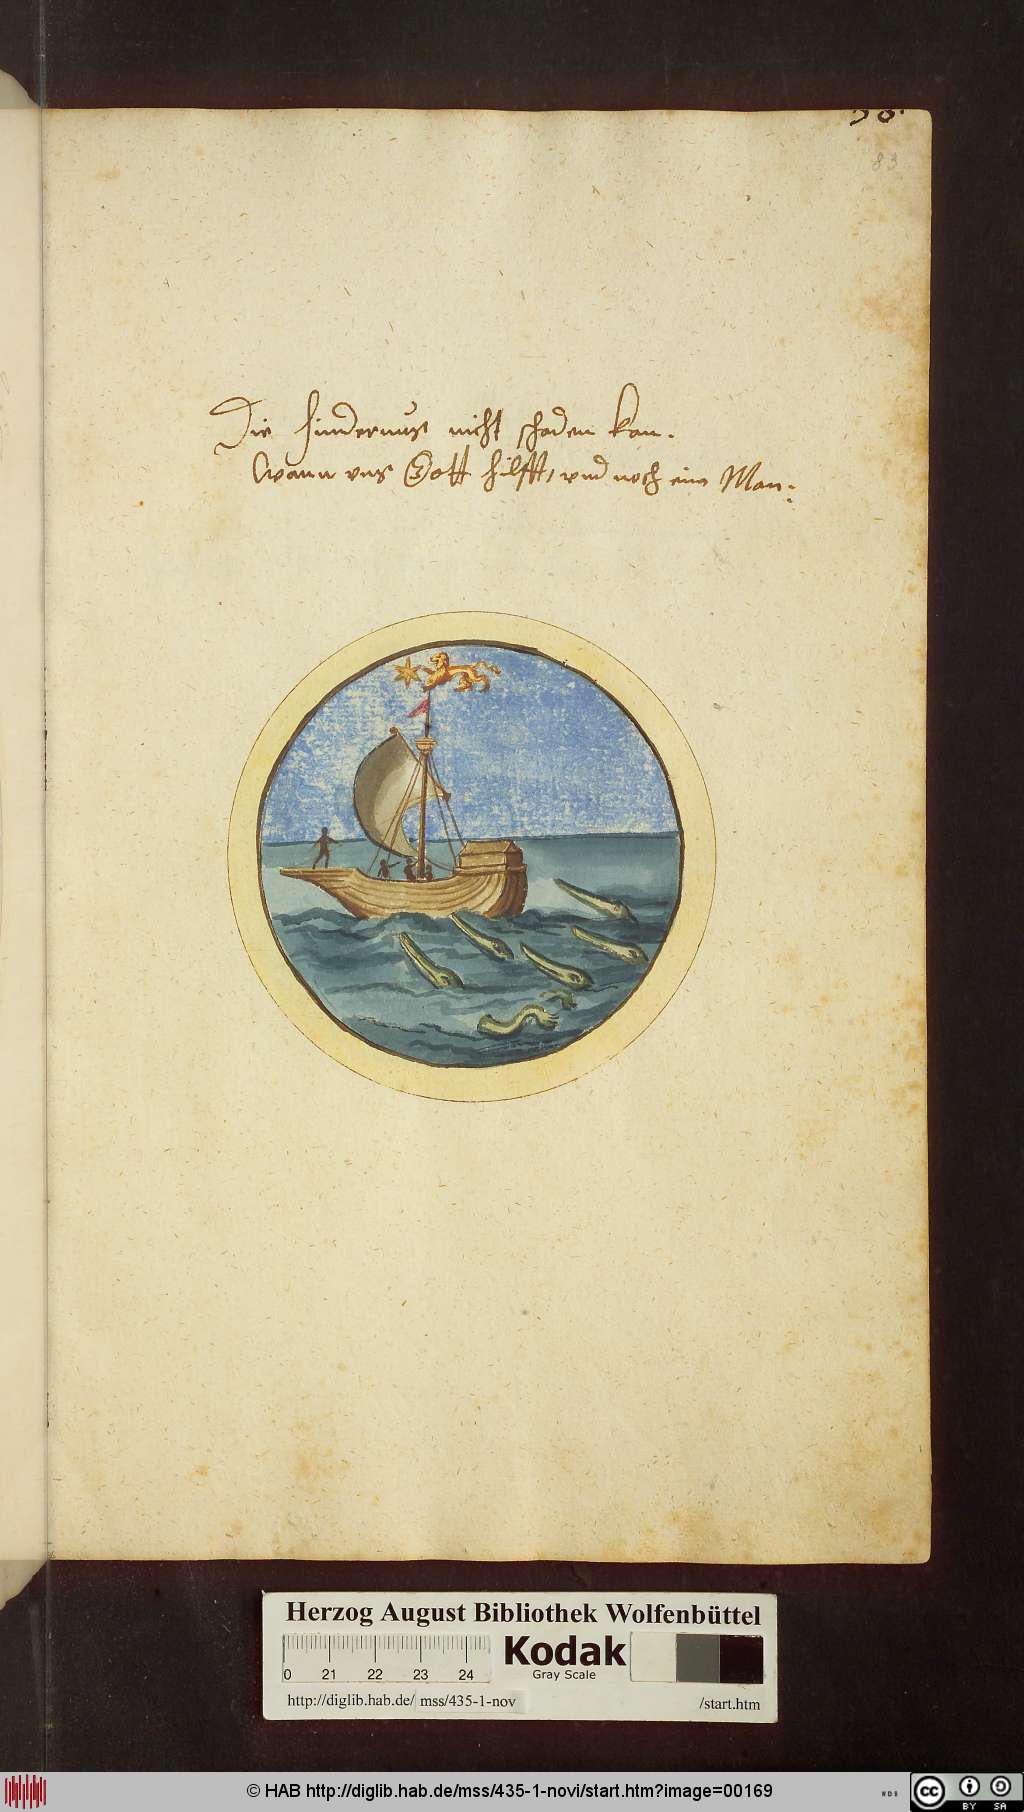 58.
83
Die hindernus nicht schaden kan.
Wann uns Gott hilfft, und noch ein Man:
Herzog August Bibliothek Wolfenbüttel
Kodak
Gray Scale
0 21 22 23 24
http://diglib.hab.de/ mss/435-1-nov /start.htm
© HAB http://diglib.hab.de/mss/435-1-novi/start.htm?image=00169
cc BY SA